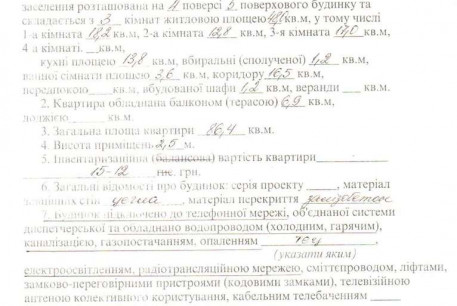 розташована на 4 поверсі 5 поверхового будинку та
складається з 3 кімнат житловою площею кв.м, у тому числі
1-а кімната 18,2 кв.м, 2-а кімната 12,8 кв.м, 3-я кімната 17,0 кв.м,
4-а кімната кв.м.
кухні площею 13,8 кв.м, вбиральні (сполученої) 1,2 кв.м,
ванної кімнати площею 3,6 кв.м, коридору 10,5 кв.м,
кв.м, вбудованої шафи 1,2 кв.м, веранди ___ кв.м.
2. Квартира обладнана балконом (терасою) 6,9 кв.м,
лоджією______ кв.м.
3. Загальна площа квартири 86,4 кв.м.
4. Висота приміщень 2,5 м.
5. Інвентаризаційна (балансова) вартість квартири
15-12 грн.
6. Загальні відомості про будинок: серія проекту _____, матеріал
стін цегла, матеріал перекриття залізобетон
7. Будинок підключено до телефонної мережі, об'єднаної системи
диспетчерської та обладнано водопроводом (холодним, гарячим),
каналізацією, газопостачанням, опаленням
(указати яким)
електроосвітленням, радіотрансляційною мережею, сміттєпроводом, ліфтами,
замково-переговірними пристроями (кодовими замками), телевізійною
антеною колективного користування, кабельним телебаченням